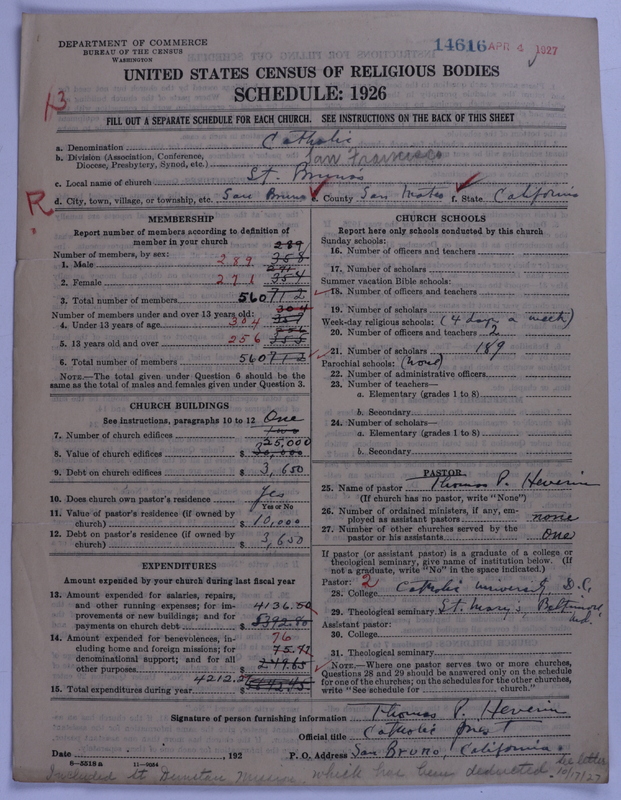 DEPARTMENT OF COMMERCE
BUREAU OF THE CENSUS
WASHINGTON
14616 APR 4 1927
UNITED STATES CENSUS OF RELIGIOUS BODIES
SCHEDULE: 1926
13
FILL OUT A SEPARATE SCHEDULE FOR EACH CHURCH. SEE INSTRUCTIONS ON THE BACK OF THIS SHEET
a. Denomination Catholic
b. Division (Association, Conference, Diocese, Presbytery, Synod, etc.) San Francisco
c. Local name of church St. Brunos
R. d. City, town, village, or township, etc. San Bruno e. County San Mateo f. State California
MEMBERSHIP
Report number of members according to definition of
member in your church
Number of members, by sex: 289
1. Male 289 358
271
2. Female 271 354
3. Total number of members 560 712
Number of members under and over 13 years old: 304
4. Under 13 years of age 304 357
256
5. 13 years old and over 256 355
6. Total number of members 560 712
NOTE.—The total given under Question 6 should be the
same as the total of males and females given under Question 3.
CHURCH BUILDINGS
See instructions, paragraphs 10 to 12 One
7. Number of church edifices two
25,000
8. Value of church edifices $ 30,000
9. Debt on church edifices $ 3,650
10. Does church own pastor's residence Yes
Yes or No
11. Value of pastor's residence (if owned by
church) $ 10,000
12. Debt on pastor's residence (if owned by
church) $ 3,650
EXPENDITURES
Amount expended by your church during last fiscal year
13. Amount expended for salaries, repairs,
and other running expenses; for im- 4136.50
provements or new buildings; and for
payments on church debt $ 5392.80
14. Amount expended for benevolences, in- 76
cluding home and foreign missions; for 75.77
denominational support; and for all
other purposes $ 249.65
4212.27
15. Total expenditures during year $
CHURCH SCHOOLS
Report here only schools conducted by this church
Sunday schools:
16. Number of officers and teachers
17. Number of scholars
Summer vacation Bible schools:
18. Number of officers and teachers
19. Number of scholars
Week-day religious schools: (4 days a week)
20. Number of officers and teachers 2
21. Number of scholars 189
Parochial schools: (none)
22. Number of administrative officers
23. Number of teachers—
a. Elementary (grades 1 to 8)
b. Secondary
24. Number of scholars—
a. Elementary (grades 1 to 8)
b. Secondary
PASTOR
25. Name of pastor Thomas P. Heverin
(If church has no pastor, write "None")
26. Number of ordained ministers, if any, em-
ployed as assistant pastors none
27. Number of other churches served by the
pastor or his assistants One
If pastor (or assistant pastor) is a graduate of a college or
theological seminary, give name of institution below. (If
not a graduate, write "No" in the space indicated.)
Pastor: 2
28. College Catholic University D.C.
29. Theological seminary St. Mary's, Baltimore, Md.
Assistant pastor:
30. College
31. Theological seminary
NOTE.—Where one pastor serves two or more churches,
Questions 28 and 29 should be answered only on the schedule
for one of the churches; on the schedules for the other churches,
write "See schedule for church."
Signature of person furnishing information Thomas P. Heverin
Official title Catholic Priest
Date , 192 P. O. Address San Bruno, California
8—5518a 11—9084
Included St Dunstan Mission which has been deducted. See letter
10/17/27